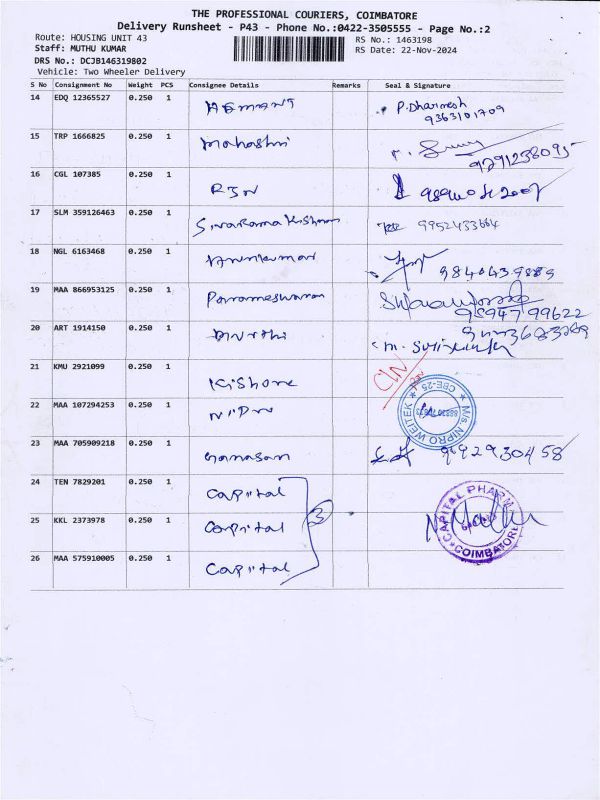 THE PROFESSIONAL COURIERS, COIMBATORE
Delivery Runsheet - P43 - Phone No.:0422-3505555 - Page No.:2
Route: HOUSING UNIT 43
RS No.: 1463198
Staff: MUTHU KUMAR
RS Date: 22-Nov-2024
DRS No.: DCJB146319802
Vehicle: Two Wheeler Delivery
S No Consignment No Weight PCS Consignee Details Remarks Seal & Signature
14 EDQ 12365527 0.250 1 HEMANT P. Dharmesh
9363101709
15 TRP 1666825 0.250 1 Mahashri
16 CGL 107385 0.250 1
17 SLM 359126463 0.250 1 SivaRamakishnan 9952433664
18 NGL 6163468 0.250 1 Arunkumar
9840439889
19 MAA 866953125 0.250 1 Parameswaran
9894799622
20 ART 1914150 0.250 1
21 KMU 2921099 0.250 1 Kishore
22 MAA 107294253 0.250 1 NIPRO M/s. NIPRO WEITEK CBE-25
23 MAA 705909218 0.250 1 9692930458
24 TEN 7829201 0.250 1 Capital
25 KKL 2373978 0.250 1 Capital 3 CAPITAL PHARMA COIMBATORE
26 MAA 575910005 0.250 1 Capital